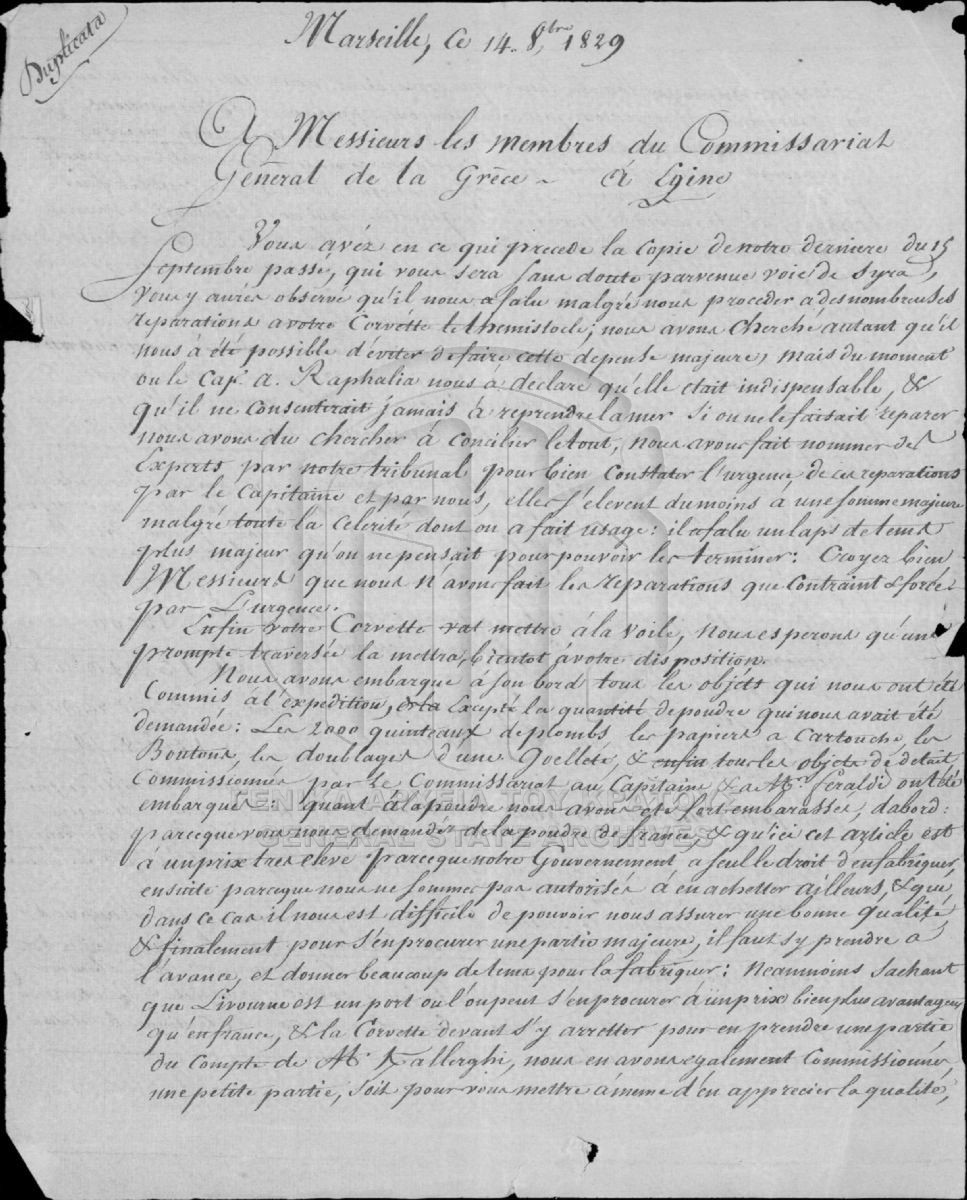 Duplicata
Marseille, Ce 14. 8bre 1829
A Messieurs les membres du Commissariat
Géneral de la Grèce - à Egine
Vous avéz en ce qui precede la Copie de notre derniere du 15
Septembre passé, qui vous sera sans doute parvenue voie de Syra,
vous y aurés observé qu'il nous a falu malgré nous proceder a des nombreuses
reparations a votre Corvette le themistocle; nous avons Cherché autant qu'il
nous à été possible d'éviter de faire cette depense majeure, mais du moment
ou le Cape. A. Raphalia nous à declaré qu'elle etait indispensable, &
qu'il ne Consentirait jamais à reprendre la mer si on ne le faisait reparer
nous avons du chercher à Concilier le tout, nous avons fait nommer des
Experts par notre tribunal pour bien Constater l'urgence de ces reparations
par le Capitaine et par nous, elles s'élevent du moins à une somme majeure
malgré toute la Celerité dont on a fait usage: il a falu un laps de tems
plus majeur qu'on ne pensait pour pouvoir les terminer: Croyez bien
Messieurs que nous n'avons fait les reparations que Contraint & forcé
par L'urgence.
Enfin votre Corvette vat mettre à la voile, nous esperons qu'une
prompte traversée la mettra bientot à votre disposition.
Nous avons embarqué à son bord tous les objéts qui nous ont été
Commis à l'éxpedition, Excepté la quantité de poudre qui nous avait été
demandée: Les 2000 quintaux de plombs les papiers a Cartouche, les
Boutons, les doublages d'une Goellete, & enfin tous les objets de detail
Commissionnés par le Commissariat au Capitaine, & a Mr. feraldi ont été
embarqués: quant à la poudre nous avons eté fort embarassés, d'abord:
parceque vous nous demandéz de la poudre de france, & qu'ici cet article est
à un prix tres elevé parceque notre Gouvernement a seul le droit d'en fabriquer,
ensuite parceque nous ne sommes pas autorisés à en achetter ailleurs, & que
dans ce cas il nous est difficile de pouvoir nous assurer une bonne qualité
& finalement pour s'en procurer une partie majeure, il faut s'y prendre a
l'avance, et donner beaucoup de tems pour la fabriquer: Neanmoins sachant
que Livourne est un port ou l'on peut s'en procurer à un prix bien plus avantageux
qu'en france, & la Corvette devant s'y arretter pour en prendre une partie
du Compte de Mr Kallerghi, nous en avons egalement Commissionné
une petite partie, soit pour vous mettre a meme d'en apprecier la qualité,
ΓΕΝΙΚΑ ΑΡΧΕΙΑ ΤΟΥ ΚΡΑΤΟΥΣ
GENERAL STATE ARCHIVES